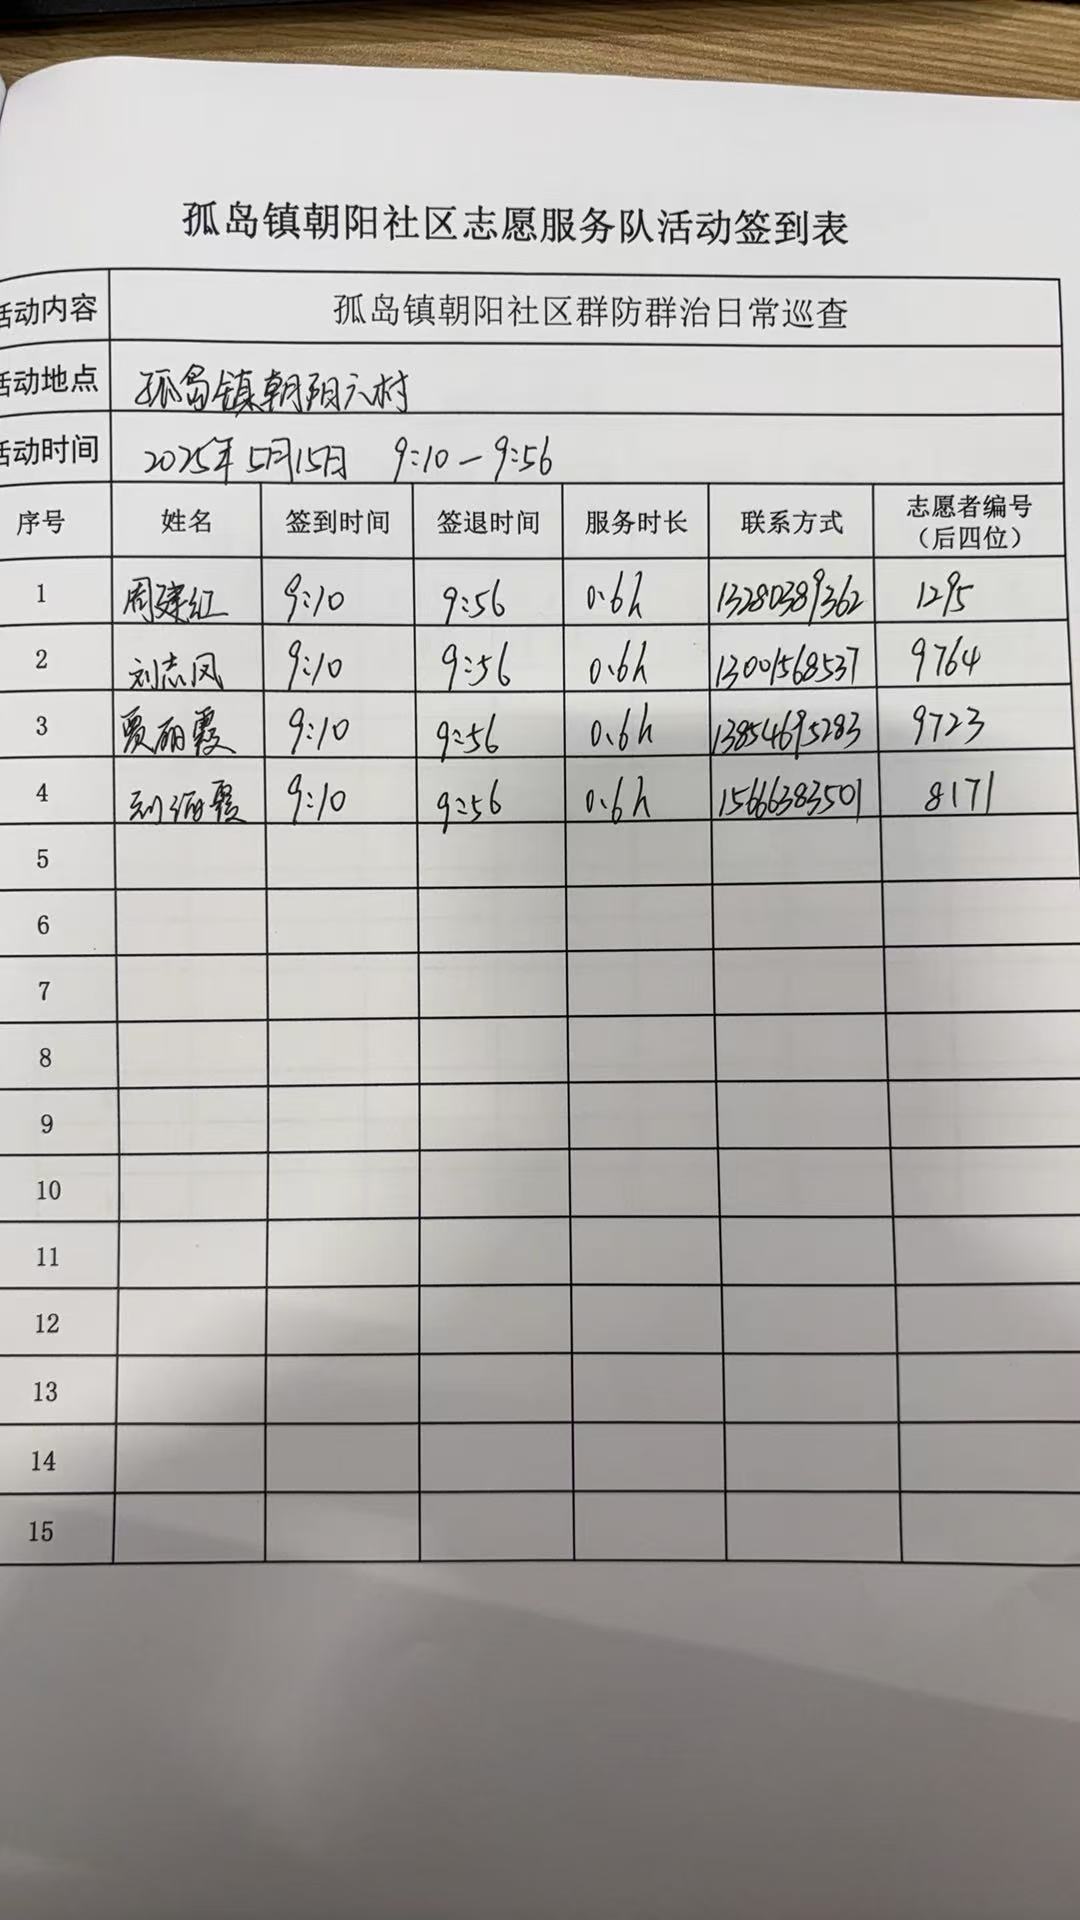 孤岛镇朝阳社区志愿服务队活动签到表
活动内容 孤岛镇朝阳社区群防群治日常巡查
活动地点 孤岛镇朝阳六村
活动时间 2025年5月15日 9:10-9:56
序号 姓名 签到时间 签退时间 服务时长 联系方式 志愿者编号（后四位）
1 周建红 9:10 9:56 0.6h 13280389362 1295
2 刘志凤 9:10 9:56 0.6h 13001568537 9764
3 贾丽霞 9:10 9:56 0.6h 13854695283 9723
4 刘 霞 9:10 9:56 0.6h 15666383501 8171
5
6
7
8
9
10
11
12
13
14
15